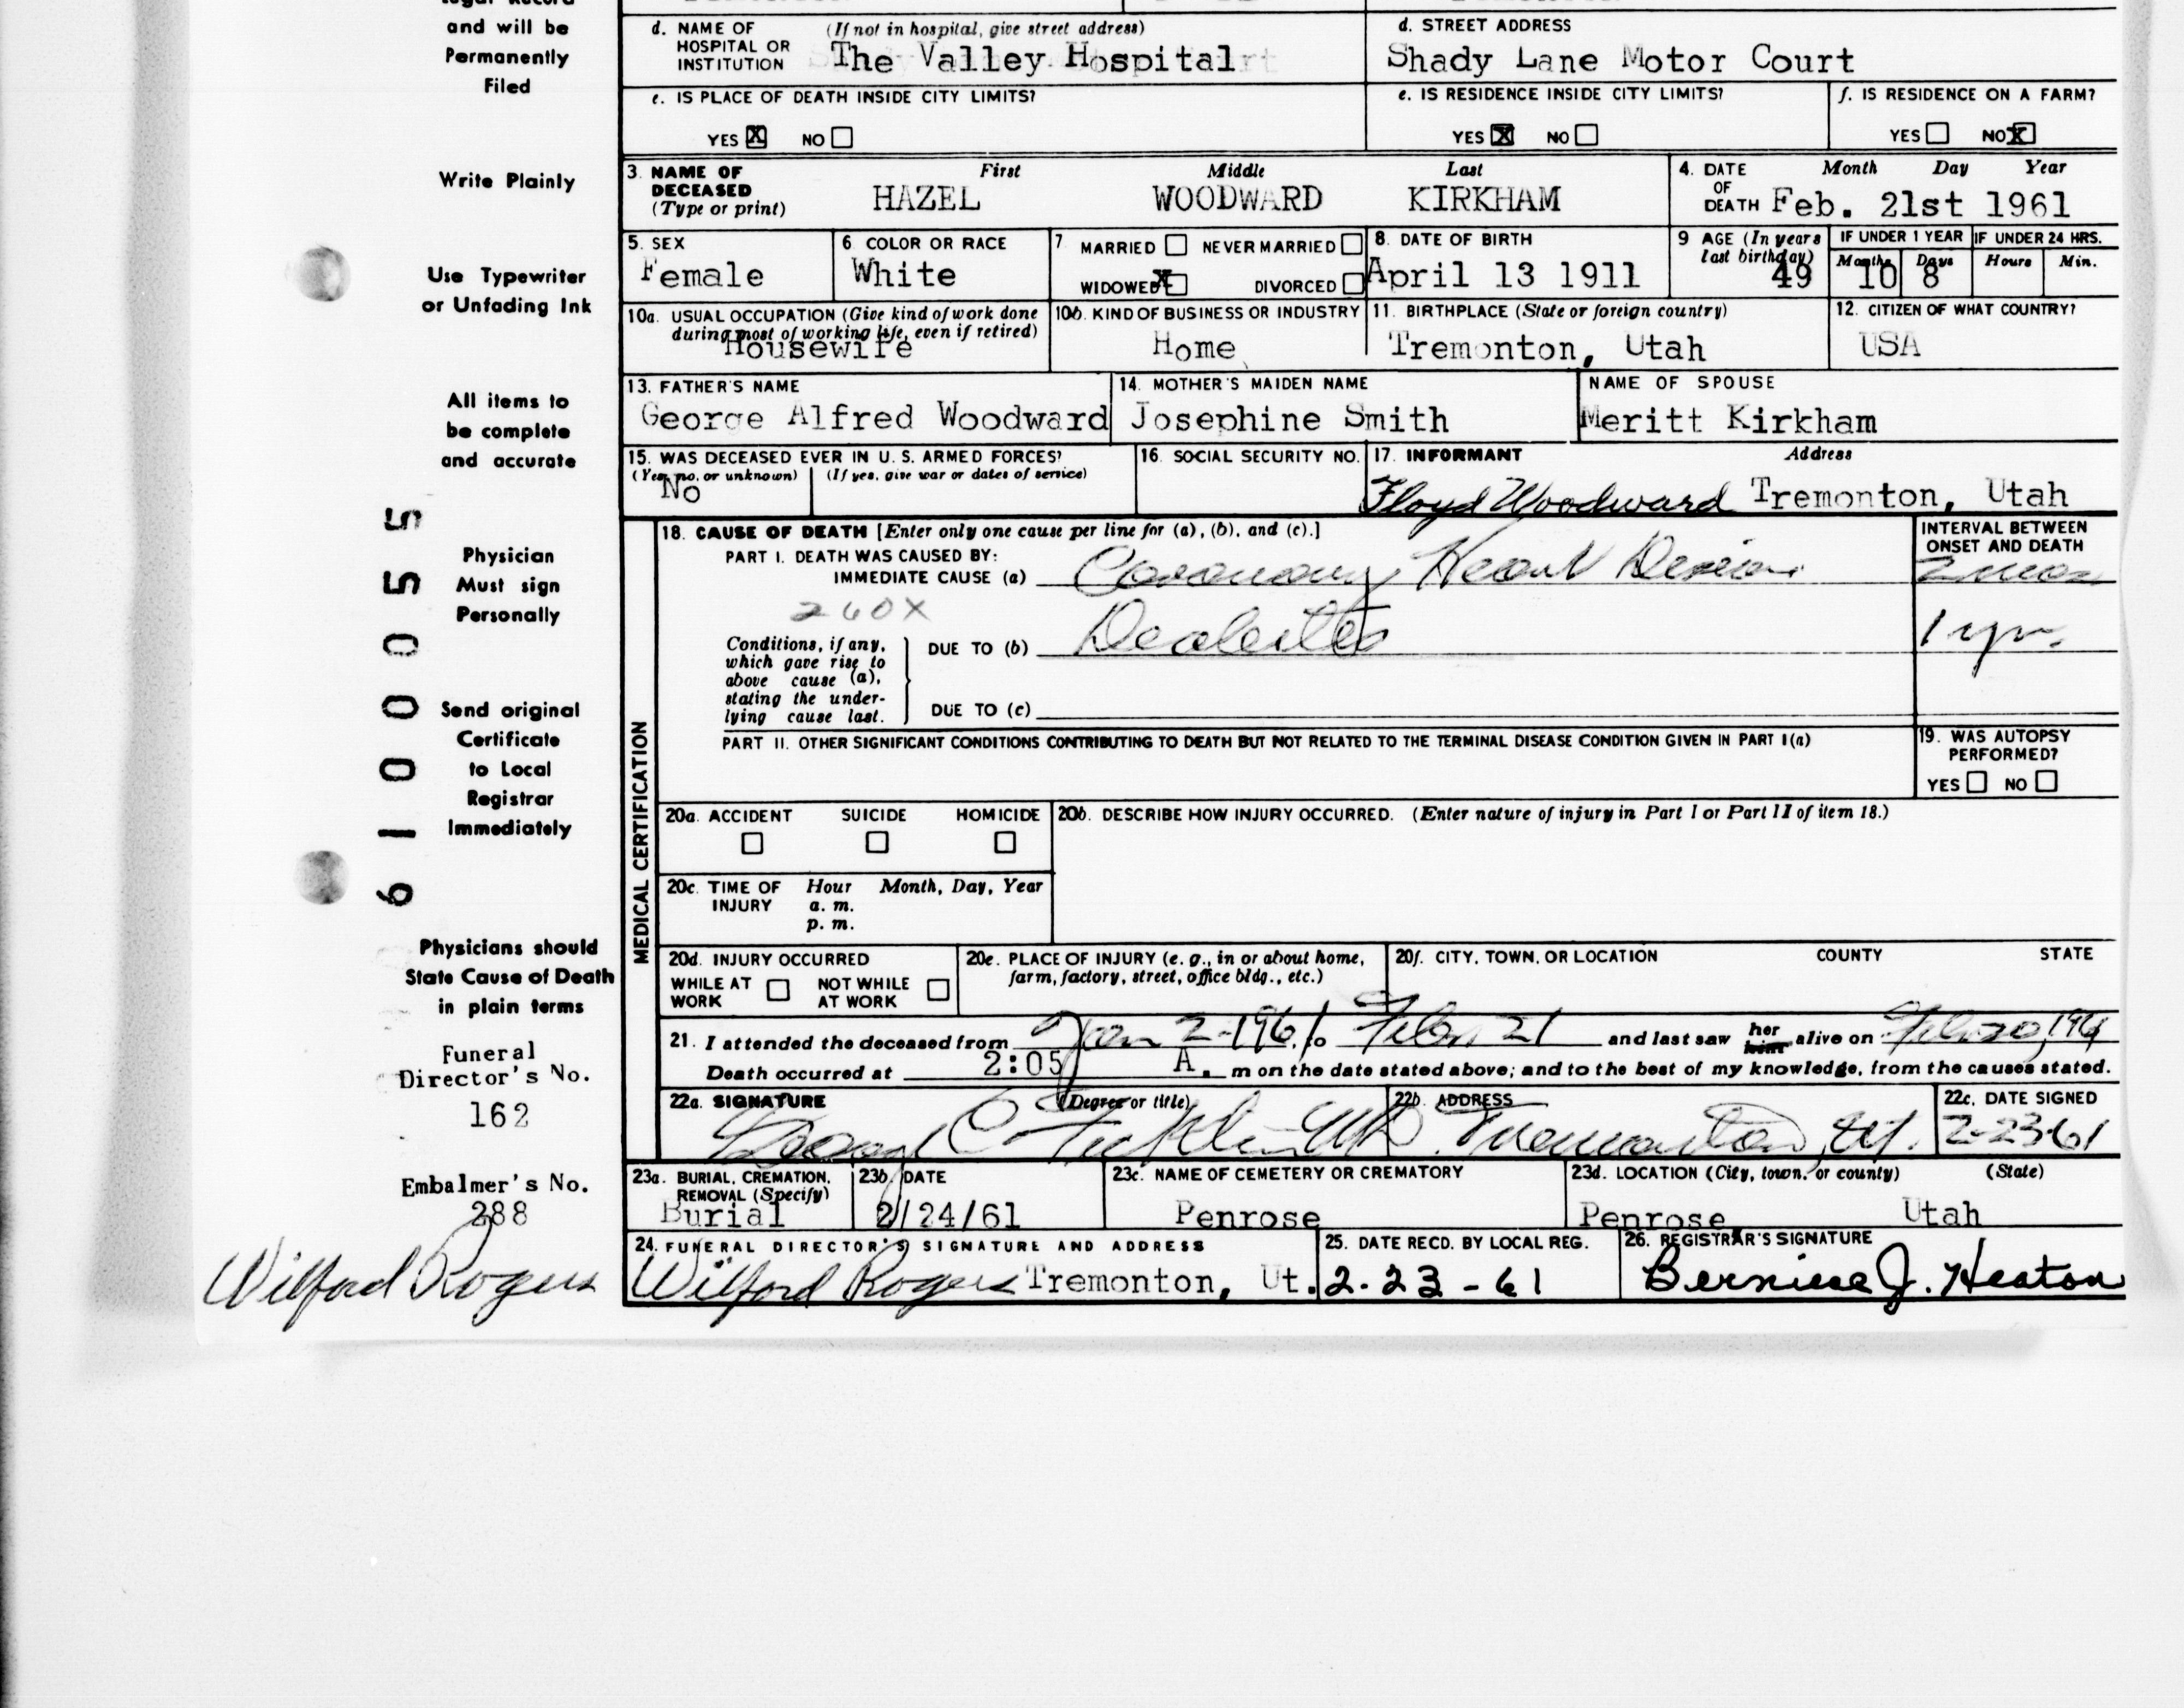 and will be
Permanently
Filed
Write Plainly
Use Typewriter
or Unfading Ink
All items to
be complete
and accurate
Physician
Must sign
Personally
Send original
Certificate
to Local
Registrar
Immediately
Physicians should
State Cause of Death
in plain terms
Funeral
Director's No.
162
Embalmer's No.
288
Wilford Rogers
61 00055
d. NAME OF HOSPITAL OR INSTITUTION (If not in hospital, give street address) The Valley Hospital
d. STREET ADDRESS Shady Lane Motor Court
e. IS PLACE OF DEATH INSIDE CITY LIMITS?
YES X NO
e. IS RESIDENCE INSIDE CITY LIMITS?
YES X NO
f. IS RESIDENCE ON A FARM?
YES NO X
3. NAME OF DECEASED (Type or print) First Middle Last
HAZEL WOODWARD KIRKHAM
4. DATE OF DEATH Month Day Year
Feb. 21st 1961
5. SEX
Female
6. COLOR OR RACE
White
7 MARRIED NEVER MARRIED
WIDOWED X DIVORCED
8. DATE OF BIRTH
April 13 1911
9 AGE (In years last birthday)
49
IF UNDER 1 YEAR
Months Days
10 8
IF UNDER 24 HRS.
Hours Min.
10a. USUAL OCCUPATION (Give kind of work done during most of working life, even if retired)
Housewife
10b. KIND OF BUSINESS OR INDUSTRY
Home
11. BIRTHPLACE (State or foreign country)
Tremonton, Utah
12. CITIZEN OF WHAT COUNTRY?
USA
13. FATHER'S NAME
George Alfred Woodward
14. MOTHER'S MAIDEN NAME
Josephine Smith
NAME OF SPOUSE
Meritt Kirkham
15. WAS DECEASED EVER IN U. S. ARMED FORCES?
(Yes, no, or unknown) (If yes, give war or dates of service)
No
16. SOCIAL SECURITY NO.
17. INFORMANT Address
Floyd Woodward Tremonton, Utah
MEDICAL CERTIFICATION
18. CAUSE OF DEATH [Enter only one cause per line for (a), (b), and (c).]
PART I. DEATH WAS CAUSED BY:
IMMEDIATE CAUSE (a) Coronary Heart
INTERVAL BETWEEN ONSET AND DEATH
260X
Conditions, if any, which gave rise to above cause (a), stating the underlying cause last.
DUE TO (b)
1 yr.
DUE TO (c)
PART II. OTHER SIGNIFICANT CONDITIONS CONTRIBUTING TO DEATH BUT NOT RELATED TO THE TERMINAL DISEASE CONDITION GIVEN IN PART I(a)
19. WAS AUTOPSY PERFORMED?
YES NO
20a. ACCIDENT SUICIDE HOMICIDE
20b. DESCRIBE HOW INJURY OCCURRED. (Enter nature of injury in Part I or Part II of item 18.)
20c. TIME OF INJURY Hour Month, Day, Year
a. m.
p. m.
20d. INJURY OCCURRED
WHILE AT WORK NOT WHILE AT WORK
20e. PLACE OF INJURY (e. g., in or about home, farm, factory, street, office bldg., etc.)
20f. CITY, TOWN, OR LOCATION COUNTY STATE
21. I attended the deceased from Jan 2-1961 to Feb. 21 and last saw her him alive on Feb. 20, 1961
Death occurred at 2:05 A. m on the date stated above; and to the best of my knowledge, from the causes stated.
22a. SIGNATURE (Degree or title)
22b. ADDRESS
Tremonton, Ut.
22c. DATE SIGNED
2-23-61
23a. BURIAL, CREMATION, REMOVAL (Specify)
Burial
23b. DATE
2/24/61
23c. NAME OF CEMETERY OR CREMATORY
Penrose
23d. LOCATION (City, town, or county) (State)
Penrose Utah
24. FUNERAL DIRECTOR'S SIGNATURE AND ADDRESS
Wilford Rogers Tremonton, Ut.
25. DATE RECD. BY LOCAL REG.
2-23-61
26. REGISTRAR'S SIGNATURE
Berniece J. Heaton